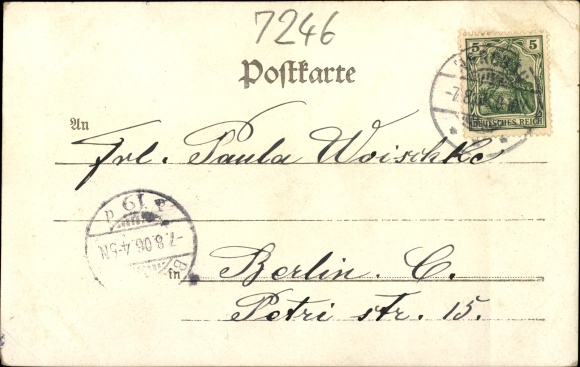 7246
Postkarte
5
DEUTSCHES REICH
An
Frl. Paula Woischke
-7.8.06.4-5N.
in
Berlin. C.
Petri str. 15.